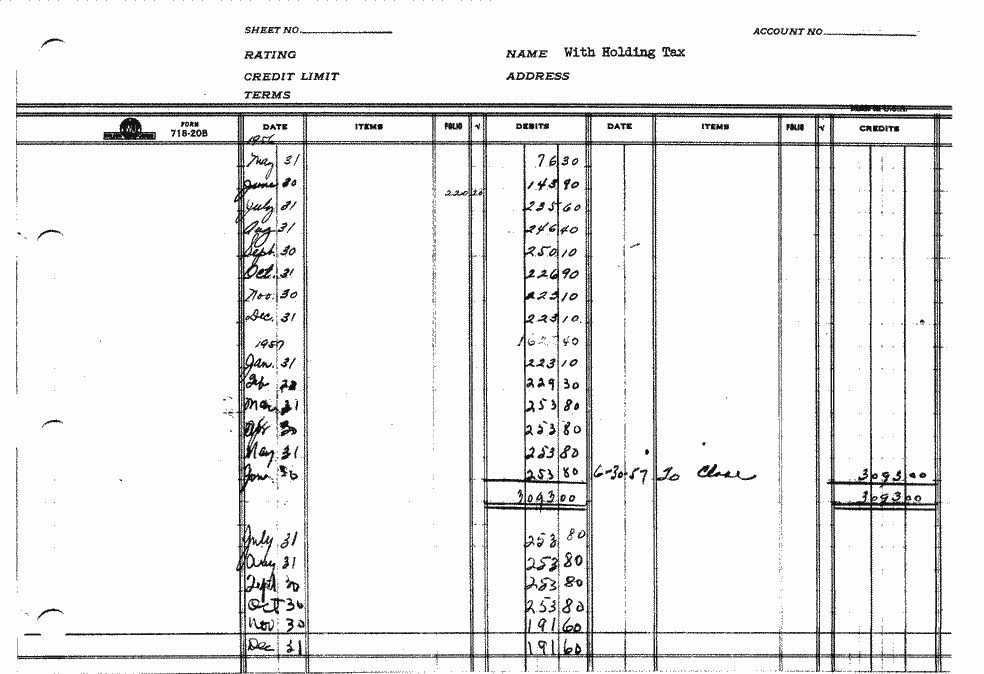 SHEET NO.
ACCOUNT NO.
RATING
NAME With Holding Tax
CREDIT LIMIT
ADDRESS
TERMS
FORM
718-20B
DATE ITEMS FOLIO √ DEBITS DATE ITEMS FOLIO √ CREDITS
1956
May 31 76 30
June 30 220 20 143 90
July 31 235 60
Aug 31 246 40
Sept 30 250 10
Oct. 31 226 90
Nov. 30 223 10
Dec. 31 223 10
1957 40
Jan. 31 223 10
Feb 28 229 30
Mar. 31 253 80
Apr 30 253 80
May 31 253 80
June 30 253 80 6-30-57 To Close 3093 00
3093 00 3093 00
July 31 253 80
Aug 31 253 80
Sept 30 253 80
Oct 30 253 80
Nov 30 191 60
Dec 31 191 60